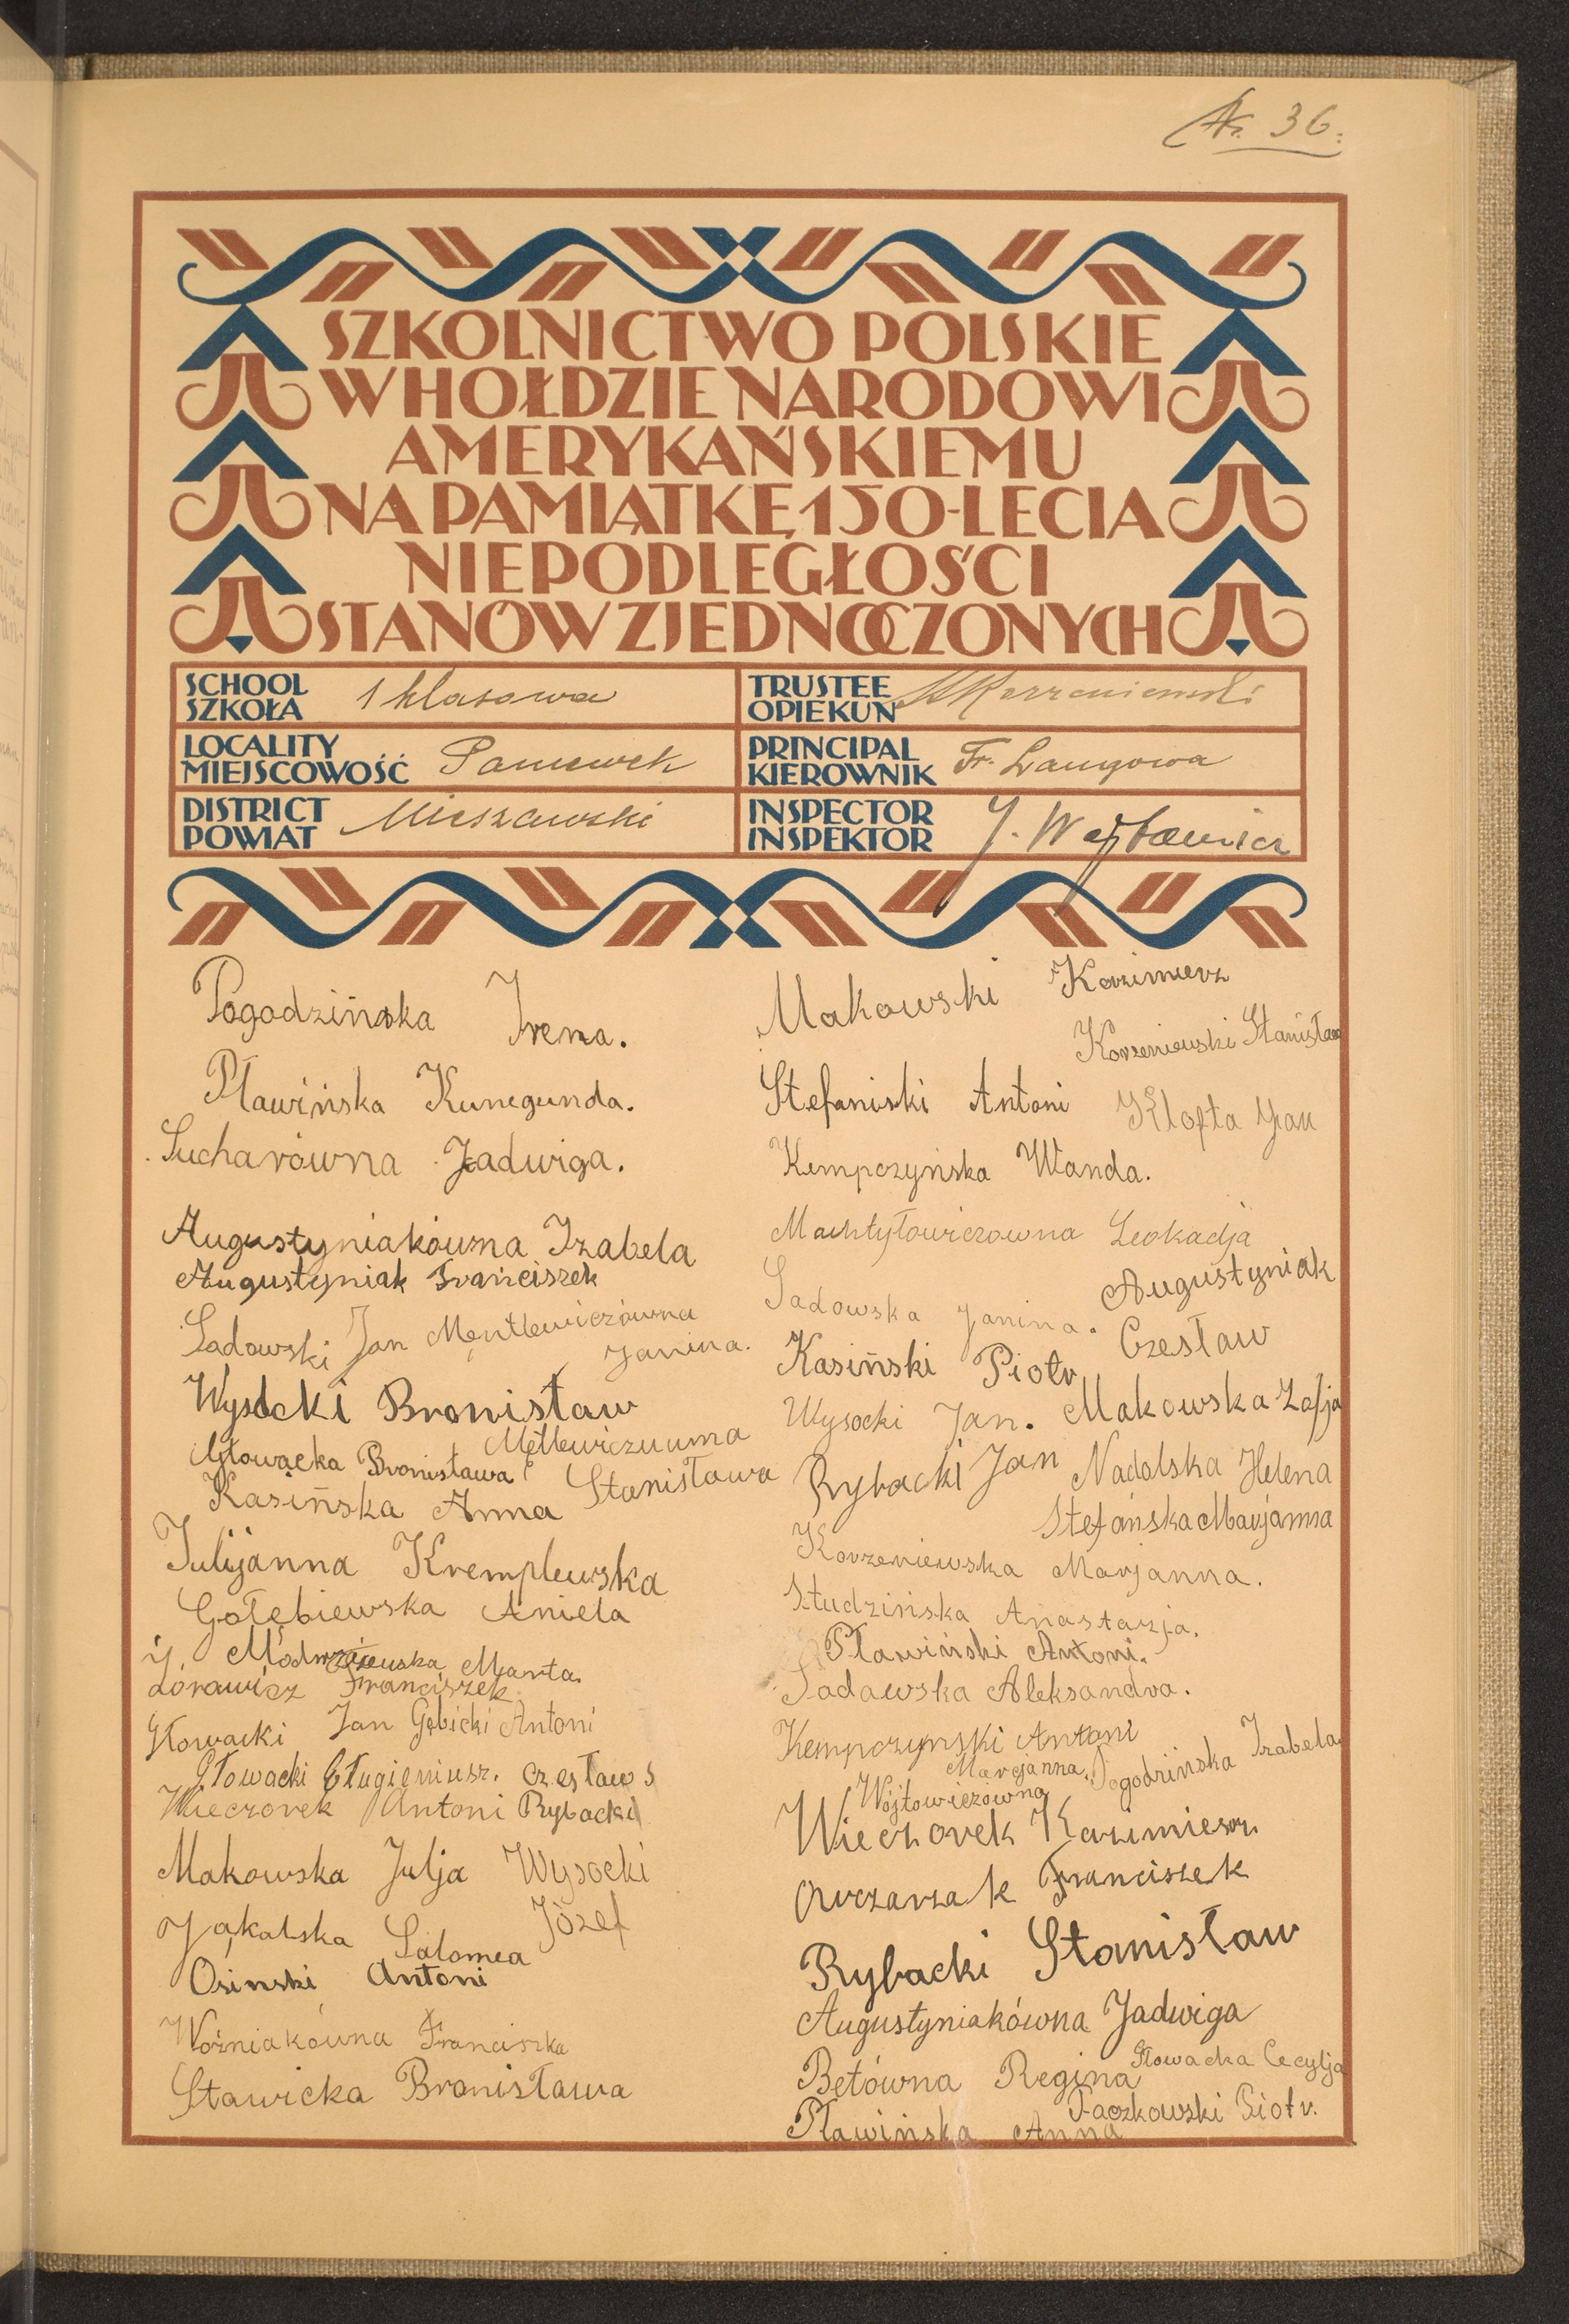 Nr. 36.
SZKOLNICTWO POLSKIE
W HOŁDZIE NARODOWI
AMERYKAŃSKIEMU
NA PAMIĄTKĘ 150-LECIA
NIEPODLEGŁOŚCI
STANÓW ZJEDNOCZONYCH
SCHOOL
SZKOŁA 1 klasowa
TRUSTEE
OPIEKUN
LOCALITY
MIEJSCOWOŚĆ Paniewek
PRINCIPAL
KIEROWNIK Fr. Langowa
DISTRICT
POWIAT Nieszawski
INSPECTOR
INSPEKTOR J. Wojtowicz
Pogodzińska Irena.
Pławińska Kunegunda.
Sucharówna Jadwiga.
Augustyniakówna Izabela
Augustyniak Franciszek
Sadowski Jan Mętlewiczówna
Janina.
Wysocki Bronisław
Metlewiczuwna
Głowacka Bronisława Stanisława
Kasińska Anna
Julijanna Kremplewska
Gołębiewska Aniela
Modrzejewska Marta.
Żórawicz Franciszek
Głowacki Jan Gębicki Antoni
Głowacki Eługieniusz. Czesław
Wieczorek Antoni Rybacki
Makowska Julja Wysocki
Józef
Jąkalska Salomea
Osinski Antoni
Woźniakówna Franciszka
Stawicka Bronisława
Makowski Kazimierz
Korzeniewski Stanisław
Stefaniski Antoni Klofta Jan
Kempczyńska Wanda.
Machtyłowiczowna Leokadja
Sadowska Janina. Augustyniak
Czesław
Kasiński Piotr
Wysocki Jan. Makowska Zofja
Rybacki Jan Nadolska Helena
Stefańska Marjanna
Korzeniewska Marjanna.
Studzińska Anastazja.
Pławiński Antoni.
Sadawska Aleksandra.
Kempczynski Antoni
Marcjanna Pogodzińska Izabela.
Wójtowiczówna
Wieczorek Kazimierz.
Owczarzak Franciszek
Rybacki Stanisław
Augustyniakówna Jadwiga
Betówna Regina Głowacka Cecylja
Paczkowski Piotr.
Pławińska Anna